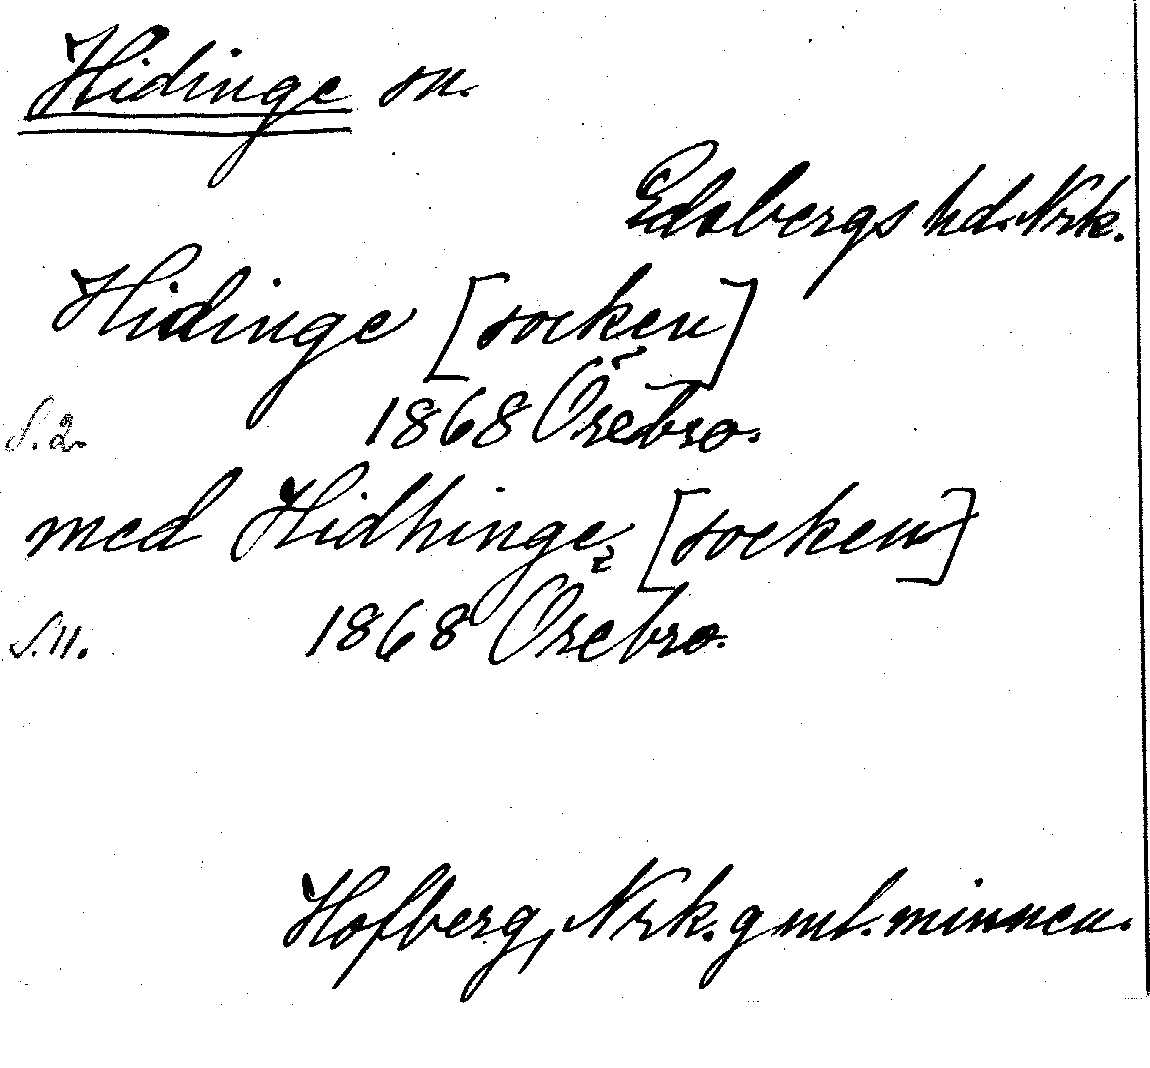 Hidinge sn.
Edsbergs hd. Nrk.
Hidinge [socken]
S. 2. 1868 Örebro.
med Hidhinge [socken]
S. 11. 1868 Örebro.
Hofberg, Nrk. gml. minnen.